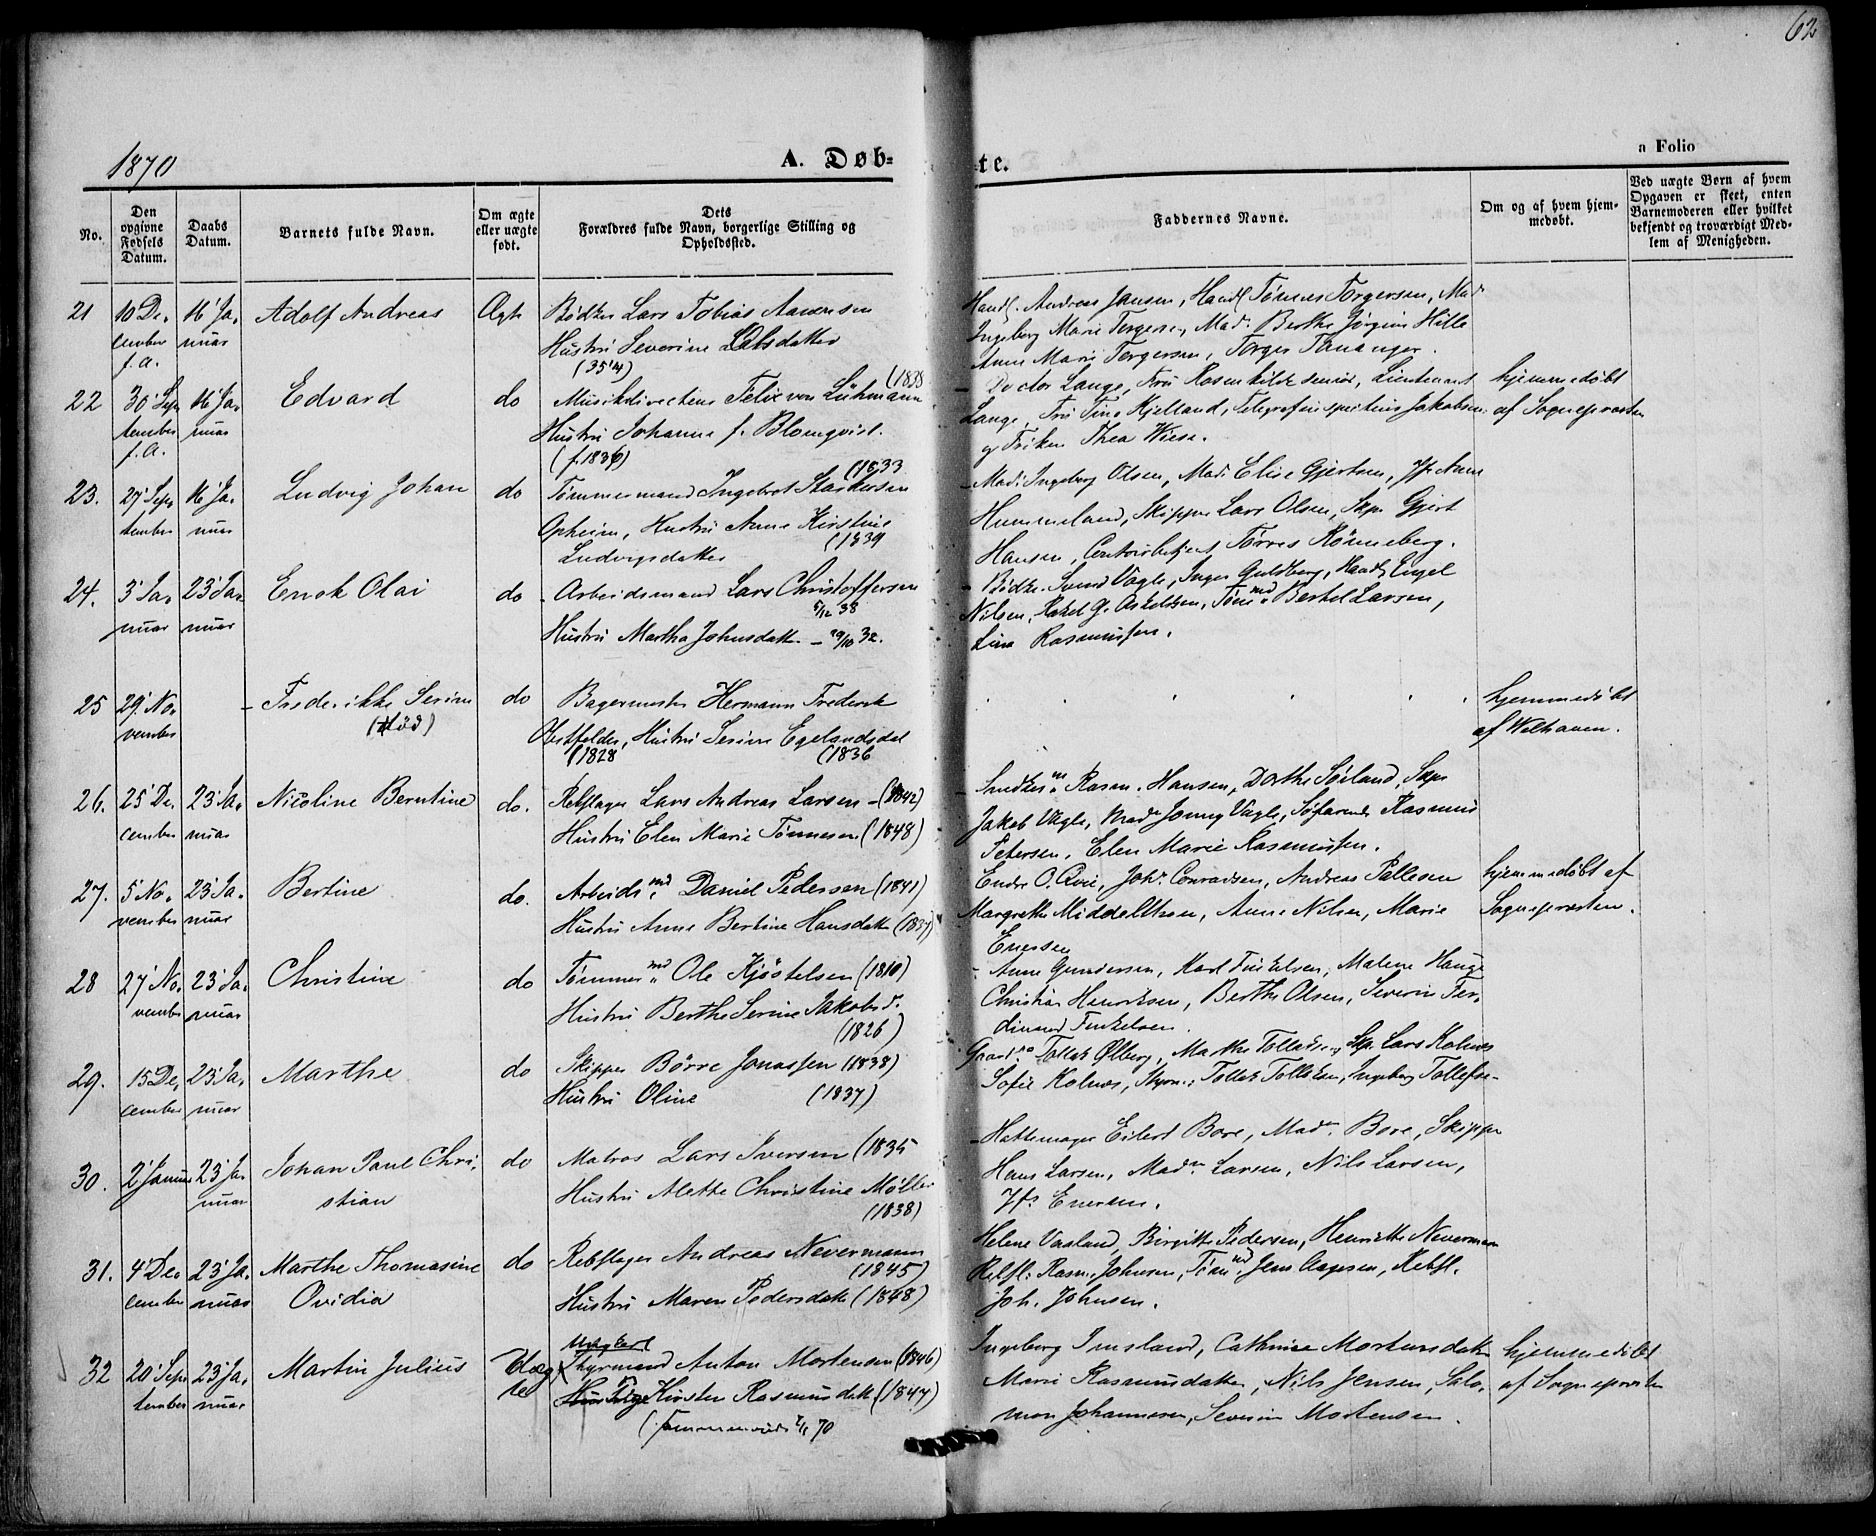 62
1870
A. Døb-
te.
a Folio
No.
Den opgivne Fødsels Datum.
Daabs Datum.
Barnets fulde Navn.
Om ægte eller uægte født.
Dets Forældres fulde Navn, borgerlige Stilling og Opholdssted.
Faddernes Navne.
Om og af hvem hjemmedøbt.
Ved uægte Børn af hvem Opgaven er skeet, enten Barnemoderen eller hvilket bekjendt og troværdigt Medlem af Menigheden.
21 10 De- 16' Ja- Adolf Andreas Ægte Bødker Lars Tobias Aanensen
cember nuar Hustru Severine
f. a. (35 
Handl. Andreas Jansen, Handl Tønnes Torgersen, Mad
Ingeborg Marie Torgersen, Mad. Berthe Jørgine Hille
Anne Marie Torgersen, Torger Tananger.
22 30' Sep 16' Ja- Edvard do Musikdirecteur Felix von Lühmann (1838
tember nuar Hustru Johanne f. Blomqvist.
f. a. (f. 1836)
Doctor Lange, Fru Rosenkilde senior, Lieutenant
Lange, Fru Tine Kjelland, Telegrafinspecteur Jakobsen
og Frøken Thea Wiese.
hjemmedøbt
af Sognepresten
23. 27' Sep 16' Ja- Ludvig Johan do Tømmermand Ingebret (1833
tember nuar Opheim, Hustru Anne Kirstine
Ludvigsdatter (1839
Mad. Ingeborg Olsen, Mad. Elise Gjertsen, Jfr Anne
Hummeland, Skipper Lars Olsen, Skpr Gjert
Hansen, Torres Rønneberg.
24. 3' Ja- 23' Jan Enok Olai do Arbeidsmand Lars Christoffersen
nuar nuar 5/12 38
Hustru Martha Johnsdatter - 29/10 32.
Bødker Svend Vagle, Inger Guldberg, Handl Engel
Nilsen, Rakel G. Askeldsen, Tømmd Bertel Larsen,
Line Rasmussen.
25 29' No- Frederikke Serine do Bagermester Hermann Frederik
vember (død) Obstfelder, Hustru Serine Egelandsdal
(1828 (1836
hjemmedøbt
af Welhaven.
26. 25' De- 23' Ja- Nicoline Berntine do. Rebslager Lars Andreas Larsen - (1842)
cember nuar Hustru Elen Marie Tønnesen (1848)
Snedker Rasm. Hansen, Dorthe Sørland, Skpr
Jakob Vagle, Mad. Jonny Vagle, Søfarende Rasmus
Petersen, Elen Marie Rasmussen.
27. 5' No- 23' Ja- Bertine do. Arbeidsmd. Daniel Pedersen (1841)
vember nuar Hustru Anne Bertine Hansdatt (1837)
Endre O. Qvie, Johs. Conradsen, Andreas Pallesen
Margrethe Middelthon, Anne Nilsen, Marie
Enersen
hjemmedøbt af
Sognepresten.
28 27' No- 23' Ja- Christine do Tømmermd. Ole Kjøstelsen (1810)
vember nuar Hustru Berthe Serine Jakobsd.
(1826)
Anne Gundersen, Karl Finkelsen, Malene Hauge
Christian Henriksen, Berthe Olsen, Severin Fer-
dinand Finkelsen.
29. 15 De- 23' Ja- Marthe do Skipper Børre Jonassen (1838)
cember nuar Hustru Oline (1837)
Tollak Ølberg, Marthe Tollaksen, Skp. Lars Kolnes
Sofie Kolnes, Styrm. Tollak Tollaksen, Ingeborg Tollefse-
30. 2' Januar 23' Ja- Johan Paul Chri- do Matros Lars Iversen (1835
nuar stian Hustru Alette Christine Møller
(1838)
Hattemager Eilert Bore, Madm. Bore, Skipper
Hans Larsen, Madm Larsen, Nils Larsen,
Jfr Enersen.
31. 4' De- 23' Ja- Marthe Thomasine do Rebslager Andreas Nevermann
cember nuar Ovidia (1845)
Hustru Maren Pedersdatt (1848)
Helene Vasland, Birgitte Pedersen, Henriette Neverman
Rebsl. Rasm. Johnsen, Tømmd. Jens Aagesen, Rebsl.
Joh. Johnsen.
32 20' Sep 23' Ja- Martin Julius Uæg- Ungkarl
tember nuar te Styrmand Anton Mortensen (1846)
Pige Kirsten Rasmusdatt (1847)
70
Ingeborg Imsland, Cathrine Mortensdatter
Marie Rasmusdatter, Nils Jensen, Salo-
mon Johannesen, Severin Mortensen.
hjemmedøbt
af Sognepresten